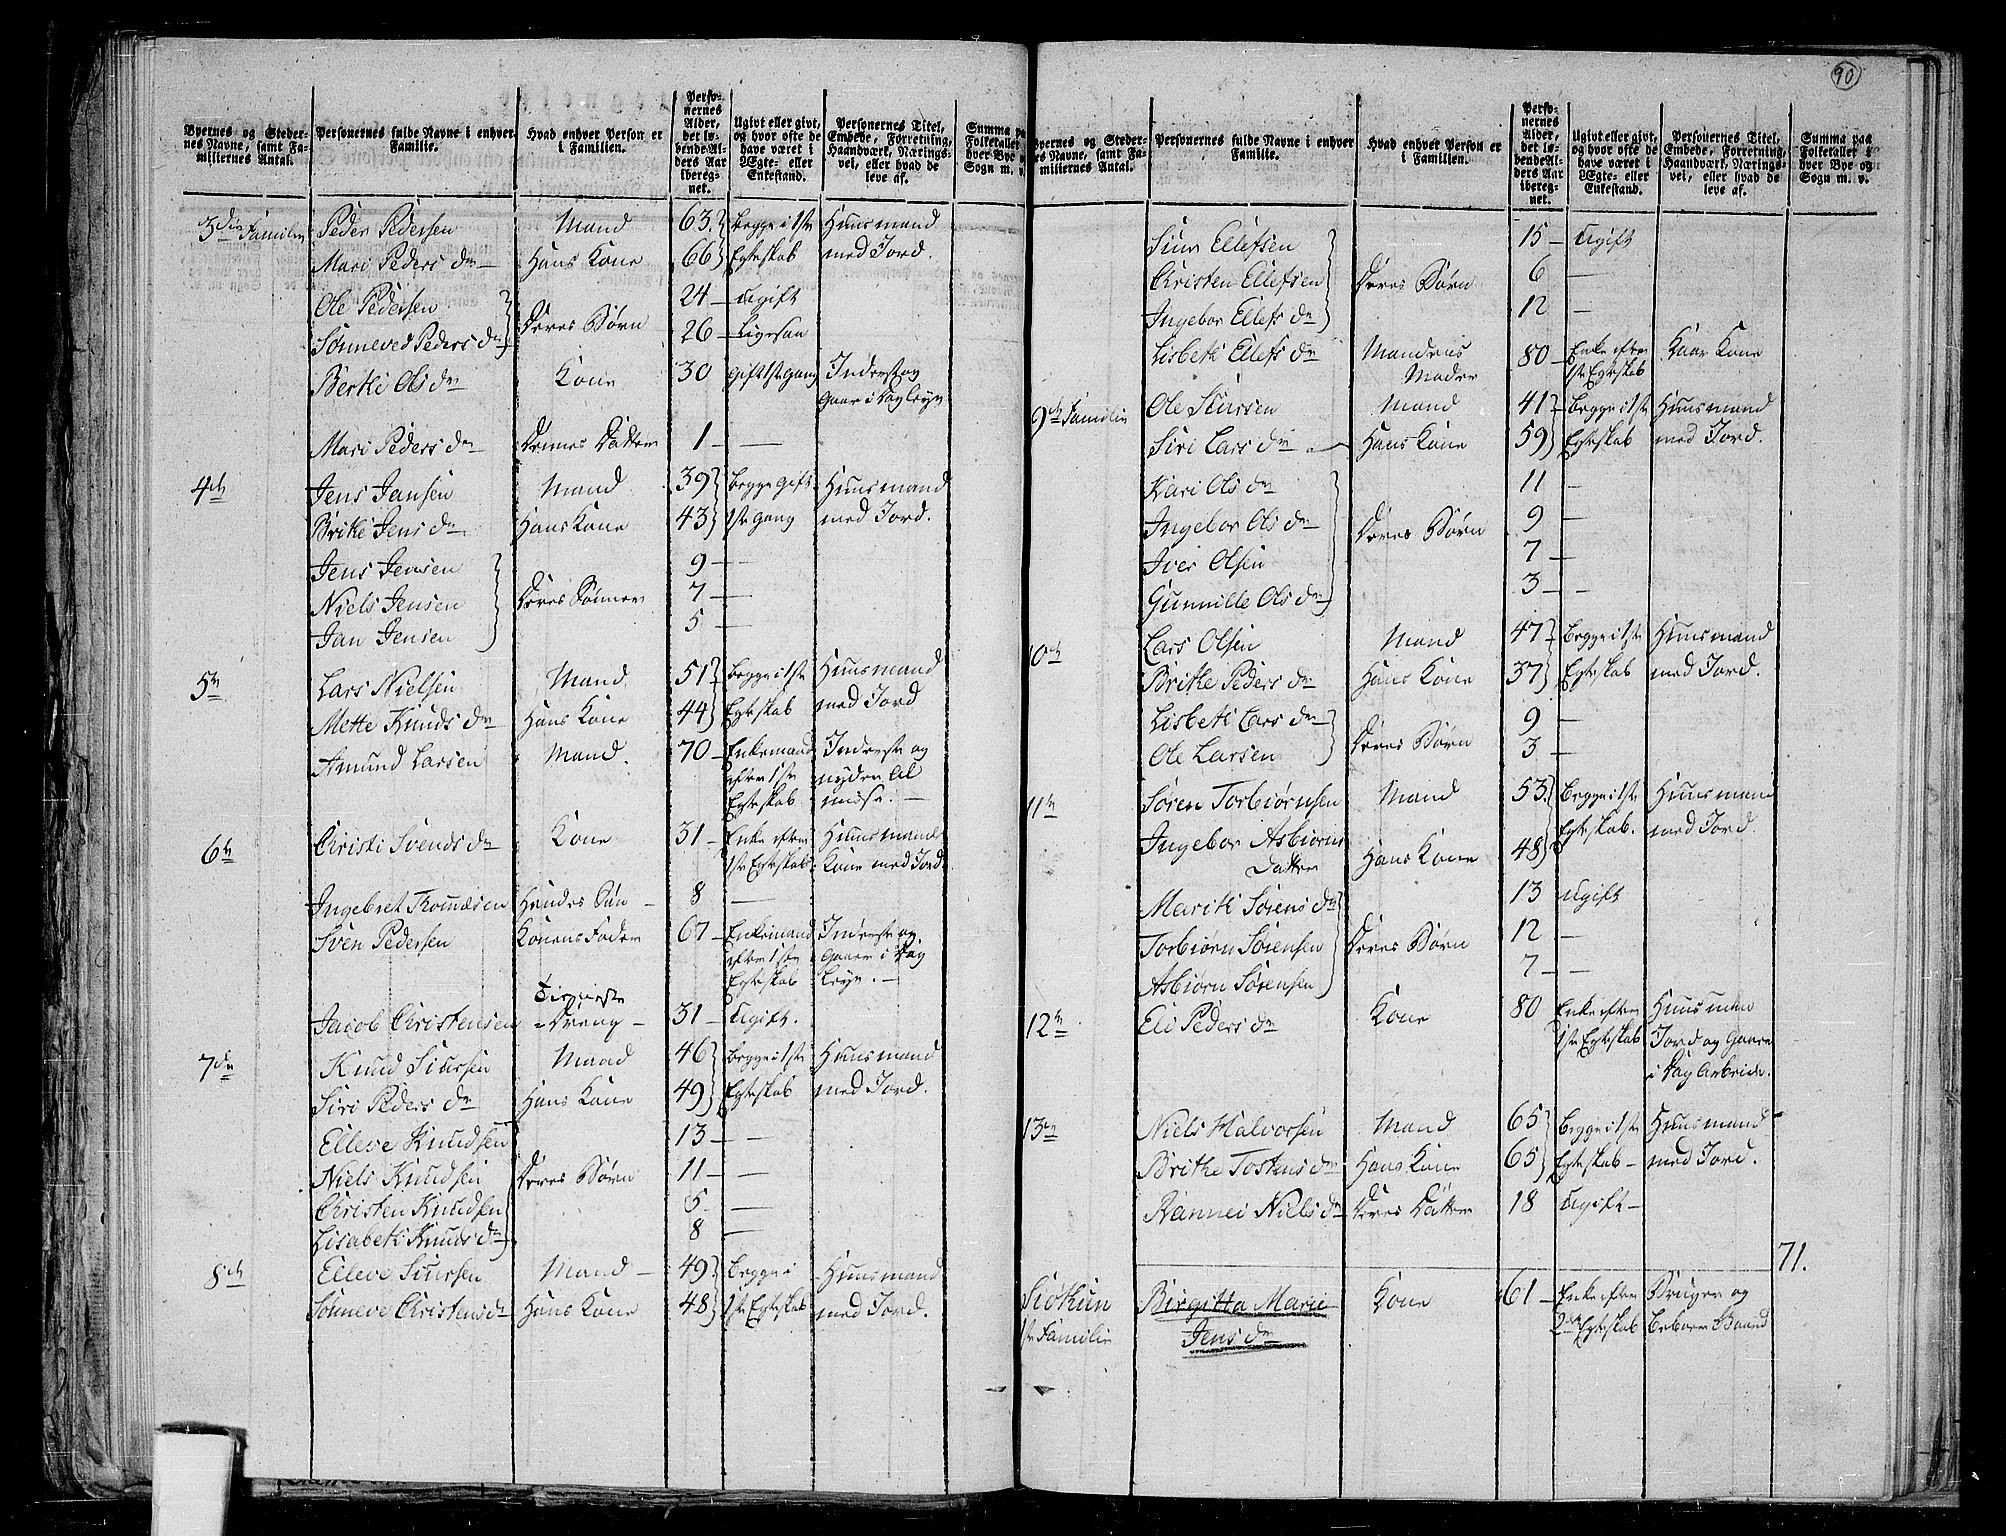 90
Byernes og Steder-
nes Navne, samt Fa-
miliernes Antal.
Personernes fulde Navne i enhver
Familie.
Hvad enhver Person er
i Familien.
Perso-
nernes
Alder,
det lø-
bende Al-
ders Aar
ibereg-
net.
Ugivt eller givt,
og hvor ofte de
have været i
Ægte- eller
Enkestand.
Personernes Titel,
Embede, Forretning,
Haandværk, Nærings-
vei, eller hvad de
leve af.
Summa paa
Folketallet i
hver Bye og
Sogn m. v.
3die Familie Peder Pedersen Mand 63 Begge i 1ste Huusmand
Mari Peders dr Hans Kone 66 Egteskab med Jord.
Ole Pedersen 24 – Ugift
Deres Børn
Sønneved Peders dr 26 – Ligesaa
Berthe Ols dr Kone 30 Gift 1ste gang Inderst og
Gaar i Dagleye
Mari Peders dr Dennes Datter 1 –
4de Jens Jansen Mand 39 Begge gift Huusmand
Brithe Jens dr Hans Kone 43 1ste gang med Jord.
Jens Jensen 9 –
Niels Jensen Deres Sønner 7 –
Jan Jensen 5 –
5te Lars Nielsen Mand 51 Begge i 1ste Huusmand
Mette Knuds dr Hans Kone 44 Egteskab med Jord
Amund Larsen Mand. 70 – Enkemand Inderste og
efter 1ste nyder Al
Egteskab misse. –
6te Christi Svends dr Kone 31 – Enke efter Huusmands
1ste Egteskab Kone med Jord
Ingebret Thomæsen Hendes Søn – 8 –
Sven Pedersen Konens Fader 67 – Enkemand Inderste og
efter 1ste Gaaer i Dag
Egteskab Leye. –
Tieneste
Jacob Christensen Dreng – 31 – Ugift.
7de Knud Siursen Mand 46 Begge i 1ste Huusmand
Siri Peders dr Hans Kone 49 Egteskab med Jord.
Elleve Knudsen 13 – –
Niels Knudsen Deres Børn 11 – –
Christen Knudsen 5 –
Lisabeth Knuds dr 8 –
8de Elleve Siursen Mand – 49 Begge i Huusmand
Sønneve Christens dr Hans Kone 48 1ste Egteskab med Jord.
Byernes og Steder-
nes Navne, samt Fa-
miliernes Antal.
Personernes fulde Navne i enhver
Familie.
Hvad enhver Person er
i Familien.
Perso-
nernes
Alder,
det lø-
bende Al-
ders Aar
ibereg-
net.
Ugivt eller givt,
og hvor ofte de
have været i
Ægte- eller
Enkestand.
Personernes Titel,
Embede, Forretning,
Haandværk, Nærings-
vei, eller hvad de
leve af.
Summa paa
Folketallet i
hver Bye og
Sogn m. v.
Siur Ellefsen 15 – Ugift
Christen Ellefsen Deres Børn 6 –
Ingebor Ellefs dr 12 –
Lisbeth Ellefs dr Mandens 80 – Enke efter Kaar Kone
Moder 1ste Egteskab
9de Familie Ole Siursen Mand 41 Begge i 1ste Huusmand
Siri Lars dr Hans Kone 59 Egteskab med Jord.
Kari Ols dr 11 –
Ingebor Ols dr Deres Børn 9 –
Iver Olsen 7 –
Gunnille Ols dr 3 – –
10de Lars Olsen Mand 47 Begge i 1ste Huusmand
Brithe Peders dr Hans Kone 37 Egteskab med Jord.
Lisbeth Lars dr 9 –
Deres Børn
Ole Larsen 3 –
11te Søren Torbiørnsen Mand 53 Begge i 1ste Huusmand
Ingebor Asbiørns Egteskab. med Jord.
Datter Hans Kone 48
Marith Sørens dr 13 Ugift
Torbiørn Sørensen Deres Børn 12 –
Asbiørn Sørensen 7 – –
12te Eli Peders dr Kone 80 Enke efter Huus uden
1ste Egteskab Jord og Gaaer
i Dag Arbeide.
13de Niels Halvorsen Mand 65 Begge i 1ste Huusmand
Brithe Tostens dr Hans Kone 65 Egteskab – med Jord.
Rannei Niels dr Deres Datter 18 Ugift –
71.
Siøthun Birgitta Marie Kone 61 – Enke efter Bruger og
1ste Familie Jens dr 2det Egteskab Beboer Gaard